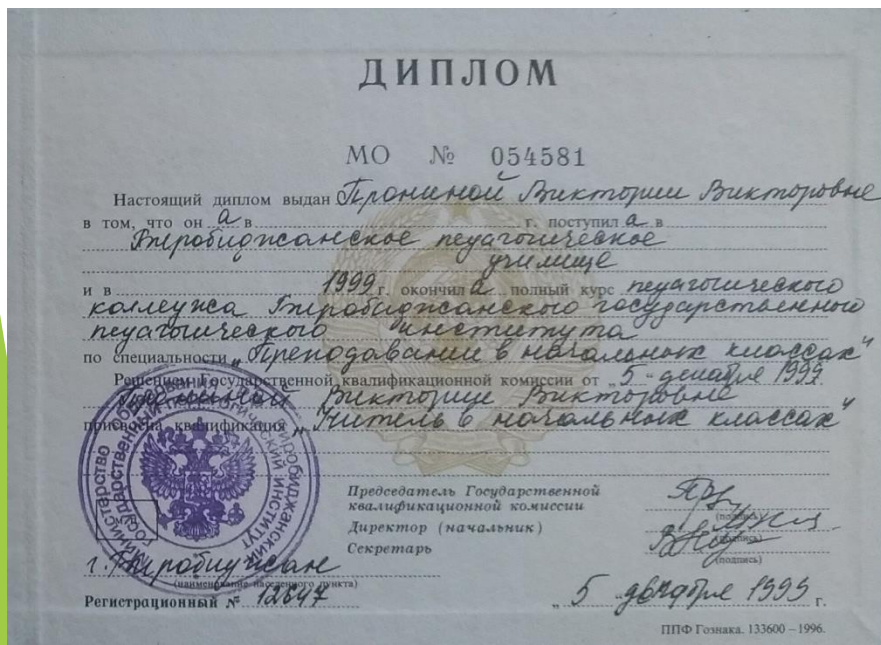 ДИПЛОМ
МО № 054581
Настоящий диплом выдан Прониной Виктории Викторовне
в том, что он а в г. поступил а в
Биробиджанское педагогическое
училище
и в 1999 г. окончил а полный курс педагогического
колледжа Биробиджанского государственного
педагогического института
по специальности „Преподавании в начальных классах"
Решением Государственной квалификационной комиссии от „5" декабря 1999
Прониной Виктории Викторовне
присвоена квалификация „Учитель в начальных классах"
Председатель Государственной
квалификационной комиссии
(подпись)
Директор (начальник)
(подпись)
Секретарь
(подпись)
г. Биробиджан
(наименование населенного пункта)
Регистрационный № 12647
„ 5 декабря 1999 г.
ППФ Гознака. 133600 – 1996.